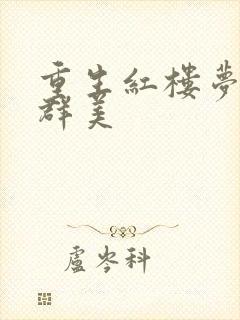 重生紅樓夢
群美
盧岑科